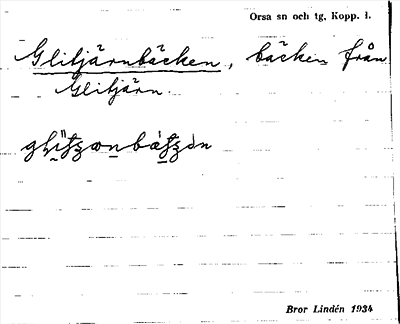 Orsa sn och tg. Kopp. l.
Glitjärnbäcken, bäcken från
Glitjärn.
Bror Lindén 1934